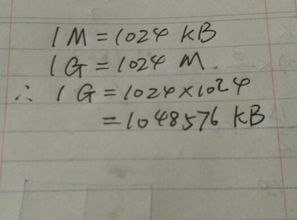 1 M = 1024 KB
1 G = 1024 M.
∴ 1 G = 1024×1024
= 1048576 KB